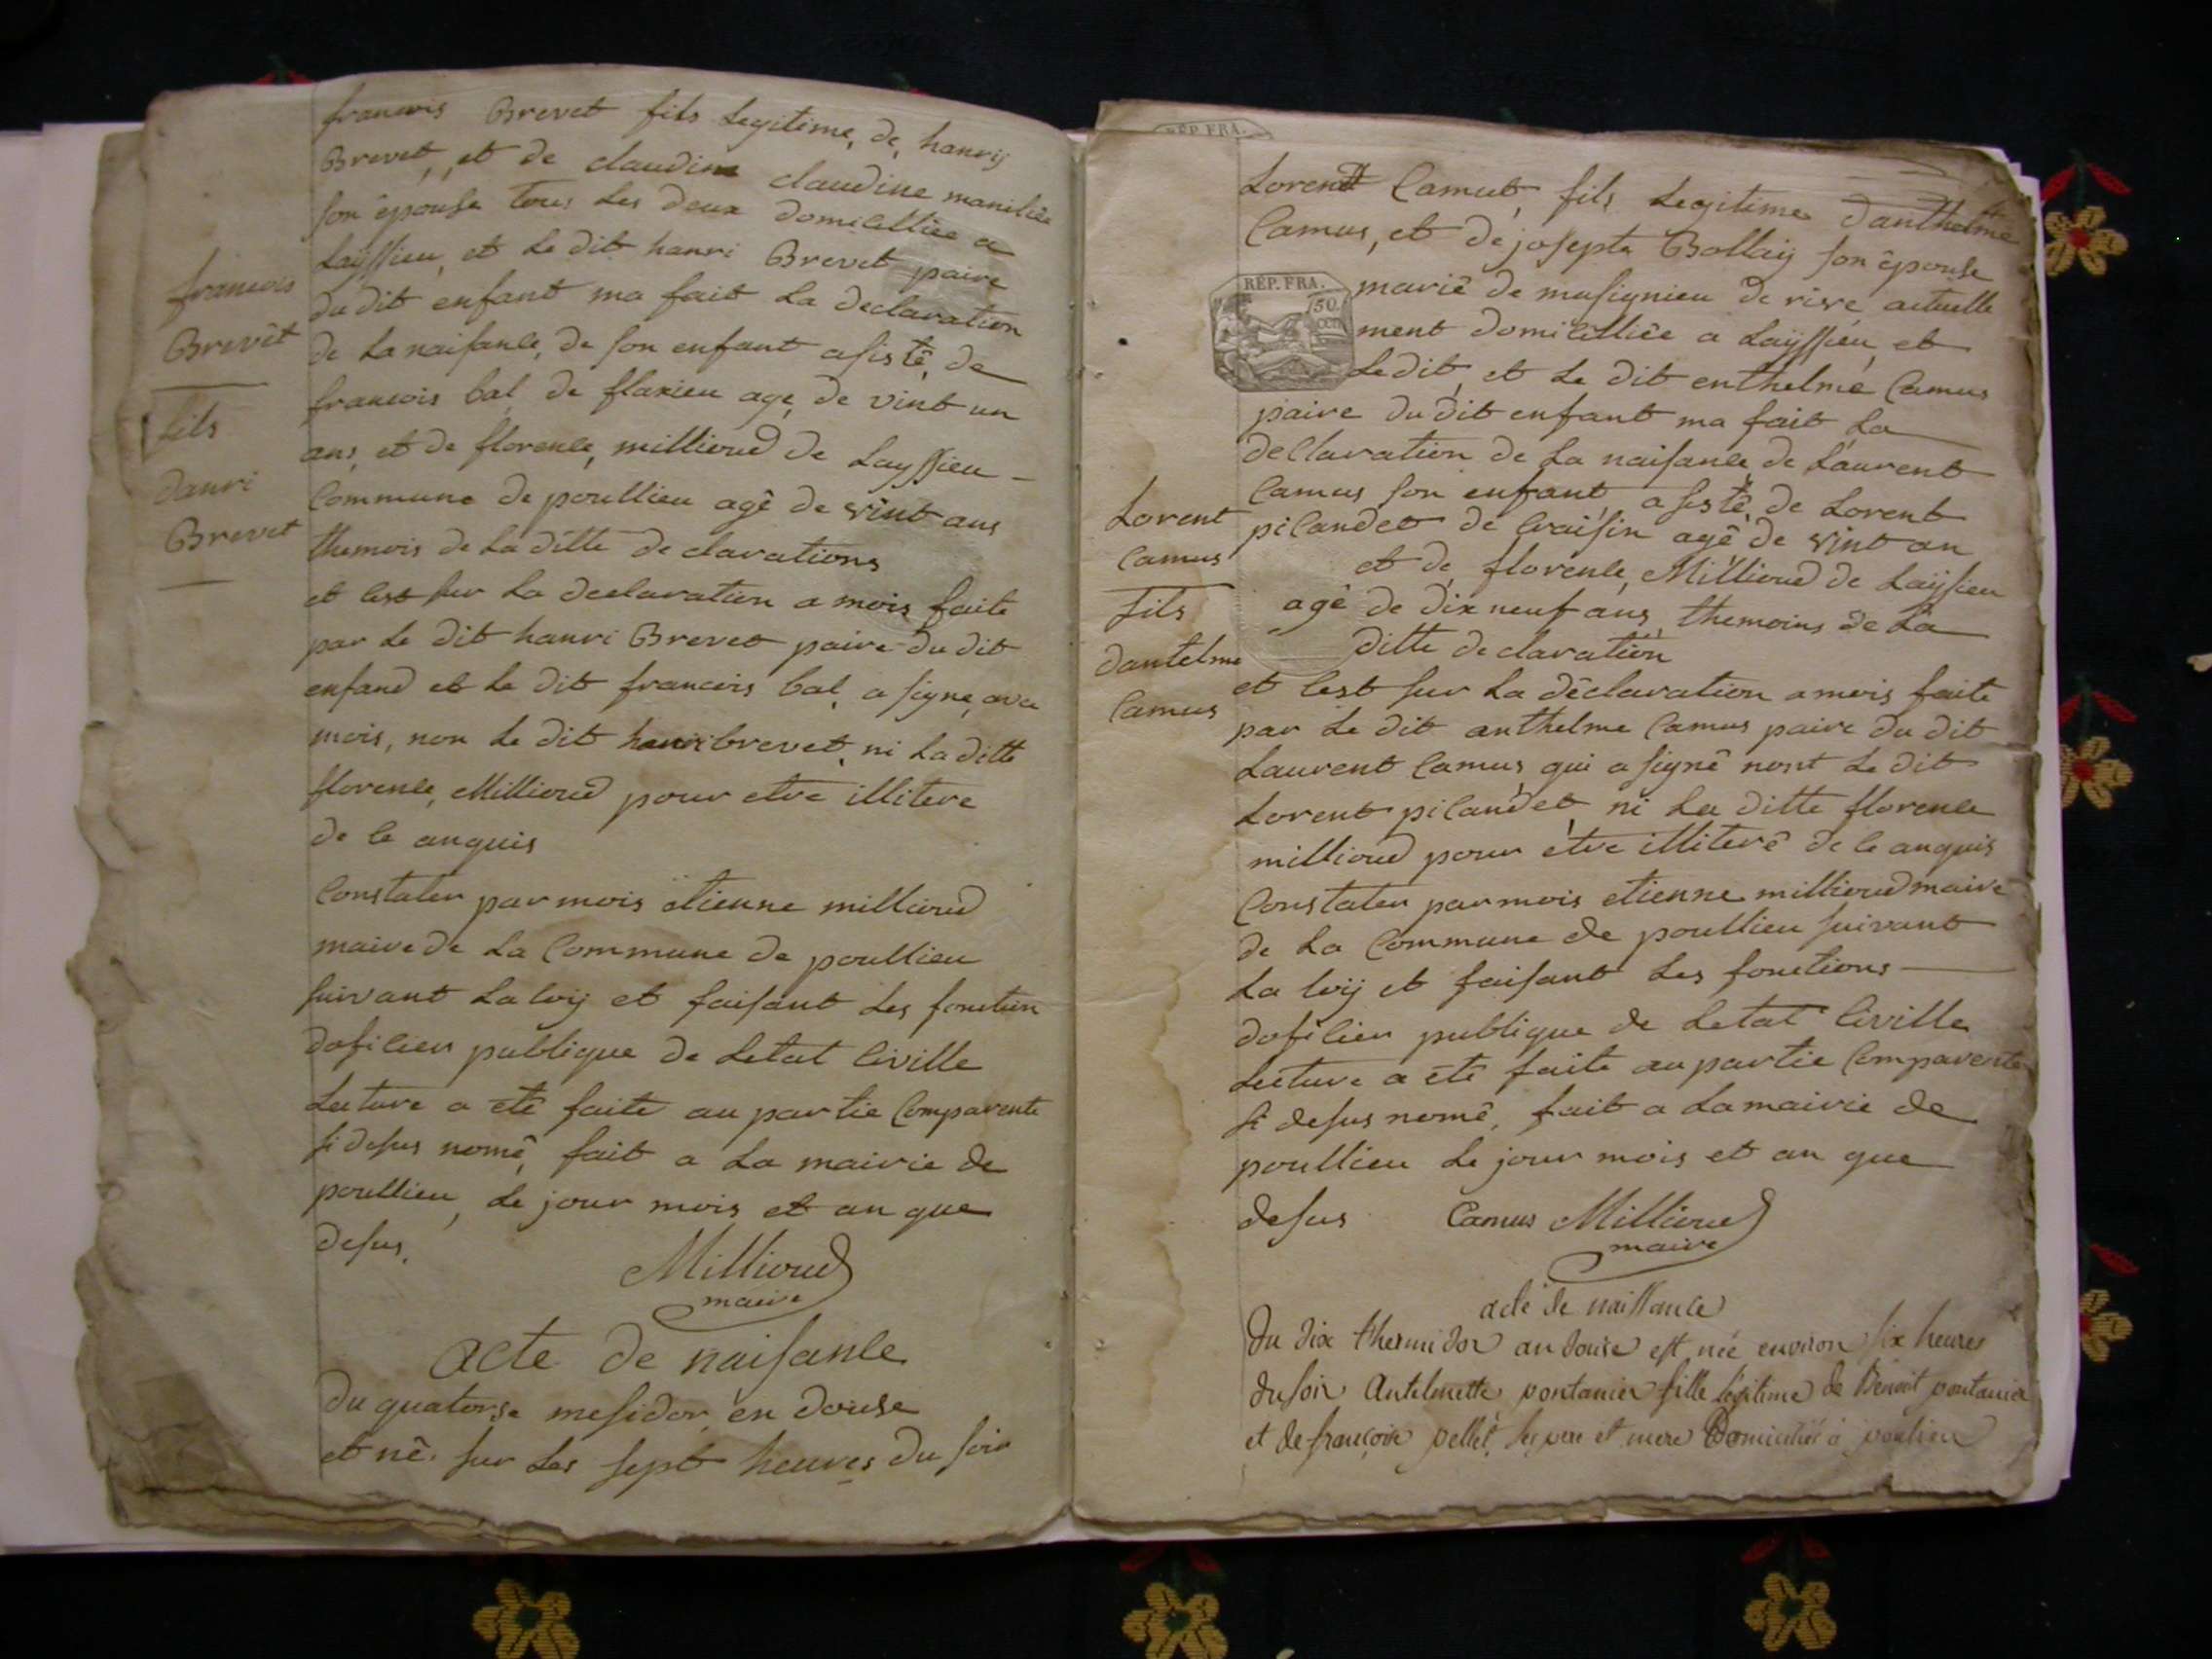 francois Brevet fils Legitime, de, hanrij
Brevet, et de claudine claudine maniliée
son épouse tous Les deux domicilliée a
Laÿssieu, et Le dit hanri Brevet paire
du dit enfant ma fait La declaration
de La naisance, de son enfant asistê, de
francois bal, de flaxieu age, de vint un
ans, et de florence, millioud de Layssieu -
Commune de poullieu agê de vint ans
themois de La dîtte declarations
et cest sur La declaration a mois faite
par Le dit hanri Brevet paire du dit
enfand et Le dit francois bal, a signe, avec
mois, non Le dit hanri brevet, ni La ditte
florence, Millioud pour etre illitere
de ce anquis
Constater par mois êtienne millioud
maire de La Commune de poullieu
suivant La loij et faisant Les fonction
dosicier publique de Letat Civille
Lecture a etê faite au partie Comparente
si desus nomê, fait a La mairie de
poullieu, Le jour mois et an que
desus.
Millioud
maire
acte de naisance
du quatorse mesidor en douse
et nê sur Les sept heures du soir
francois
Brevêt
fils
danri
Brevet
RÉP. FRA.
Lorent Camus, fils Legitime danthelme
Camus, et de josepte Bollaij son êpouse
mariê de musignieu de rive actuelle
ment domicilliêe a Laÿssieu, et
Le dit, et Le dit enthelme Camus
paire du dit enfant ma fait La
declaration de La naisance de Laurent
Camus son enfant, asistê, de Lorent
picandet de Craisin agê de vint an
et de florence, Millioud de Laÿsieu
agê de dix neuf ans, themoins de La
ditte declaration
et cest sur La dêclaration a mois faite
par Le dit anthelme Camus paire du dit
Laurent Camus, qui a signê nont Le dit
Lorent picandet, ni La ditte florence
millioud pour être illiterê de ce anquis
Constater par mois etienne millioud maire
de La Commune de poullieu suivant
La loij et faisant Les fonctions
dosicier publique de Letat Civille
Lecture a êtê faite au partie Comparente
si desus nomê, fait a La mairie de
poullieu Le jour mois et an que
desus Camus Millioud
maire
RÉP. FRA.
50
CEN
Lorent
Camus
fils
dantelme
Camus
acte de naissance
du dix thermidor an douse est née environ six heures
du soir Antelmette pontanier fille légitime de Benoit pontanier
et de françoise pellet, ses pere et mere Domiciliés à poulieu